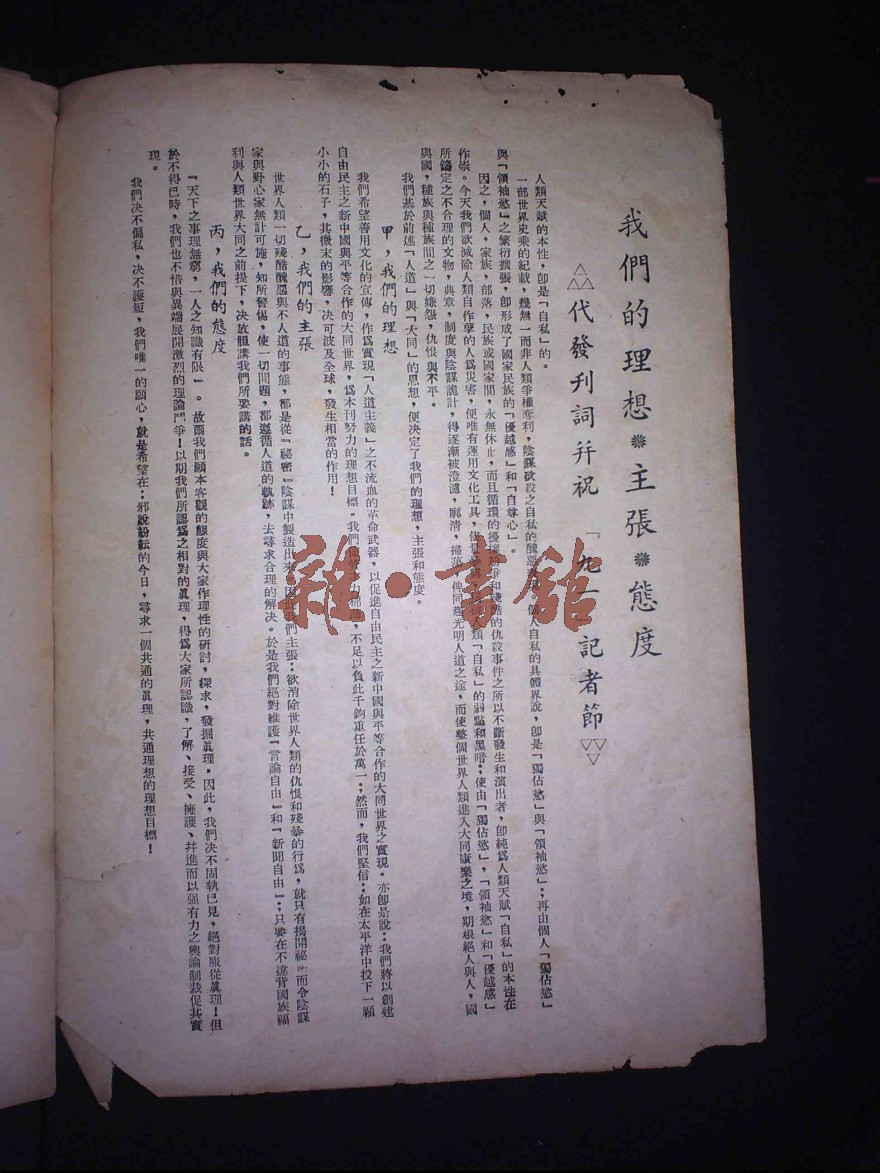 我們的理想❋主張❋態度
代發刊詞幷祝「九一」記者節
人類天賦的本性，卽是「自私」的。
一部世界史乘的紀載，幾無一而非人類爭權奪利，陰謀砍殺之自私的醜惡 個人自私的具體界說，卽是「獨佔慾」與「領袖慾」；再由個人「獨佔慾」
與「領袖慾」之繁衍擴張，卽形成了國家民族的「優越感」和「自尊心」。
因之，個人，家族，部落，民族或國家間，永無休止，而且循環的擾攘紛爭和殘酷的仇殺事件之所以不斷發生和演出者，卽純爲人類天賦「自私」的本性在
作祟。今天我們欲減除人類自作孽的人爲災害，便唯有運用文化工具， 人類「自私」的弱點和黑暗；使由「獨佔慾」，「領袖慾」和「優越感」
所鑄定之不合理的文物，典章，制度與陰謀詭計，得逐漸被澄濾，廓清，掃蕩，俾同趨光明人道之途，而使整個世界人類進入大同康樂之境，期根絕人與人，國
與國，種族與種族間之一切嫌怨，仇恨與不平。
我們基於前述「人道」與「大同」的思想，便決定了我們的理想，主張和態度。
甲，我們的理想
我們希望善用文化的宣傳，作爲實現「人道主義」之不流血的革命武器，以促進自由民主之新中國與平等合作的大同世界之實現。亦卽是說；我們將以創建
自由民主之新中國與平等合作的大同世界，爲本刊努力的理想目標。我們 力棉薄，不足以負此千鈞重任於萬一；然而，我們堅信；如在太平洋中投下一顆
小小的石子，其微末的影響，決可波及全球，發生相當的作用！
乙，我們的主張
世界人類一切殘酷醜惡與不人道的事態，都是從「祕密」陰謀中製造出來。因此我們主張：欲消除世界人類的仇恨和殘暴的行爲，就只有揭開祕 而令陰謀
家與野心家無計可施，知所警惕，使一切問題，都遵循人道的軌跡，去尋求合理的解決。於是我們絕對維護「言論自由」和「新聞自由」；只要在不違背國族福
利與人類世界大同之前提下，決放胆講我們所要講的話。
丙，我們的態度
「天下之事理無窮，一人之知識有限」。故爾我們願本客觀的態度與大家作理性的研討，探求，發掘眞理，因此，我們決不固執已見，絕對服從眞理！但
於不得已時，我們也不惜與異端展開激烈的理論鬥爭！以期我們所認爲之相對的眞理，得爲大家所認識，了解、接受、擁護、幷進而以强有力之輿論制裁促其實
現。
我們決不偏私，决不護短，我們唯一的願心，就是希望在：邪說紛紜的今日，尋求一個共通的眞理，共通理想的理想目標！
雜·書館